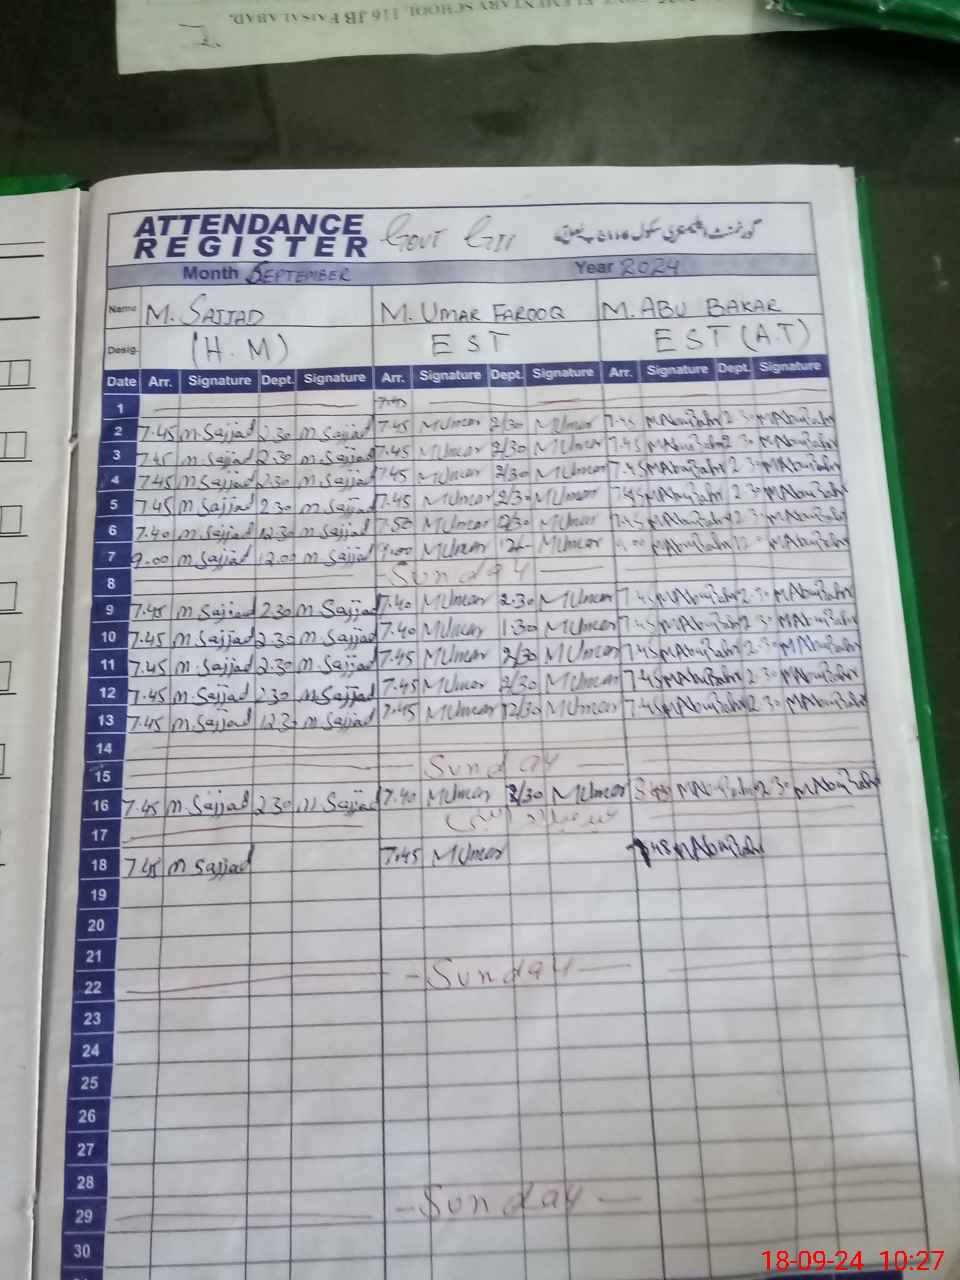 ELEMENTARY SCHOOL 116 JB FAISALABAD.
ATTENDANCE
REGISTER
Govt
گورنمنٹ ایلیمنٹری سکول
Month SEPTEMBER Year 2024
Name M. SAJJAD M. UMAR FAROOQ M. ABU BAKAR
Desig. (H.M) EST EST (A.T)
Date Arr. Signature Dept. Signature Arr. Signature Dept. Signature Arr. Signature Dept. Signature
1 7.45
2 7.45 m.Sajjad 2.30 m.Sajjad 7.45 MUmar 2/30 MUmar 7.45 MAbuBakr 2.30 MAbuBakr
3 7.45 m.Sajjad 2.30 m.Sajjad 7.45 MUmar 2/30 MUmar 7.45 MAbuBakr 2.30 MAbuBakr
4 7.45 m.Sajjad 2.30 m.Sajjad 7.45 MUmar 2/30 MUmar 7.45 MAbuBakr 2.30 MAbuBakr
5 7.45 m.Sajjad 2.30 m.Sajjad 7.45 MUmar 2/30 MUmar 7.45 MAbuBakr 2.30 MAbuBakr
6 7.40 m.Sajjad 12.30 m.Sajjad 7.50 MUmar MUmar 7.45 MAbuBakr MAbuBakr
7 9.00 m.Sajjad 12.00 m.Sajjad 9.00 MUmar MUmar 9.00 MAbuBakr MAbuBakr
8 Sunday
9 7.45 m.Sajjad 2.30 m.Sajjad 7.40 MUmar 2.30 MUmar 7.45 MAbuBakr 2.30 MAbuBakr
10 7.45 m.Sajjad 2.30 m.Sajjad 7.40 MUmar 1.30 MUmar 7.45 MAbuBakr 2.30 MAbuBakr
11 7.45 m.Sajjad 2.30 m.Sajjad 7.45 MUmar 2/30 MUmar 7.45 MAbuBakr 2.30 MAbuBakr
12 7.45 m.Sajjad 2.30 m.Sajjad 7.45 MUmar 2/30 MUmar 7.45 MAbuBakr 2.30 MAbuBakr
13 7.45 m.Sajjad 12.30 m.Sajjad 7.45 MUmar 12/30 MUmar 7.45 MAbuBakr 2.30 MAbuBakr
14
15 Sunday
16 7.45 m.Sajjad 2.30 m.Sajjad 7.40 MUmar 2/30 MUmar MAbuBakr 2.30 MAbuBakr
17
18 7.45 m Sajjad 7.45 MUmar 7.45 MAbuBakr
19
20
21
22 Sunday
23
24
25
26
27
28
29 Sunday
30
18-09-24 10:27